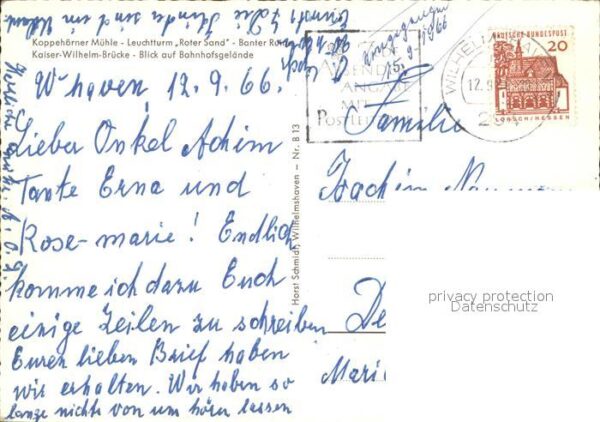 Koppehörner Mühle - Leuchtturm „Roter Sand" - Banter
Kaiser-Wilhelm-Brücke - Blick auf Bahnhofsgelände
W'haven 12.9.66.
Lieber Onkel Achim
Tante Erna und
Rose-marie! Endlich
komme ich dazu Euch
einige Zeilen zu schreiben
Euren lieben Brief haben
wir erhalten. Wir haben so
lange nichts von uns hören lassen
Horst Schmidt, Wilhelmshaven - Nr. B 13
ANGABE
MIT
15.9.1966
12.9.
DEUTSCHE BUNDESPOST
20
LORSCH/HESSEN
Familie
Joachim
De
Mari
privacy protection
Datenschutz